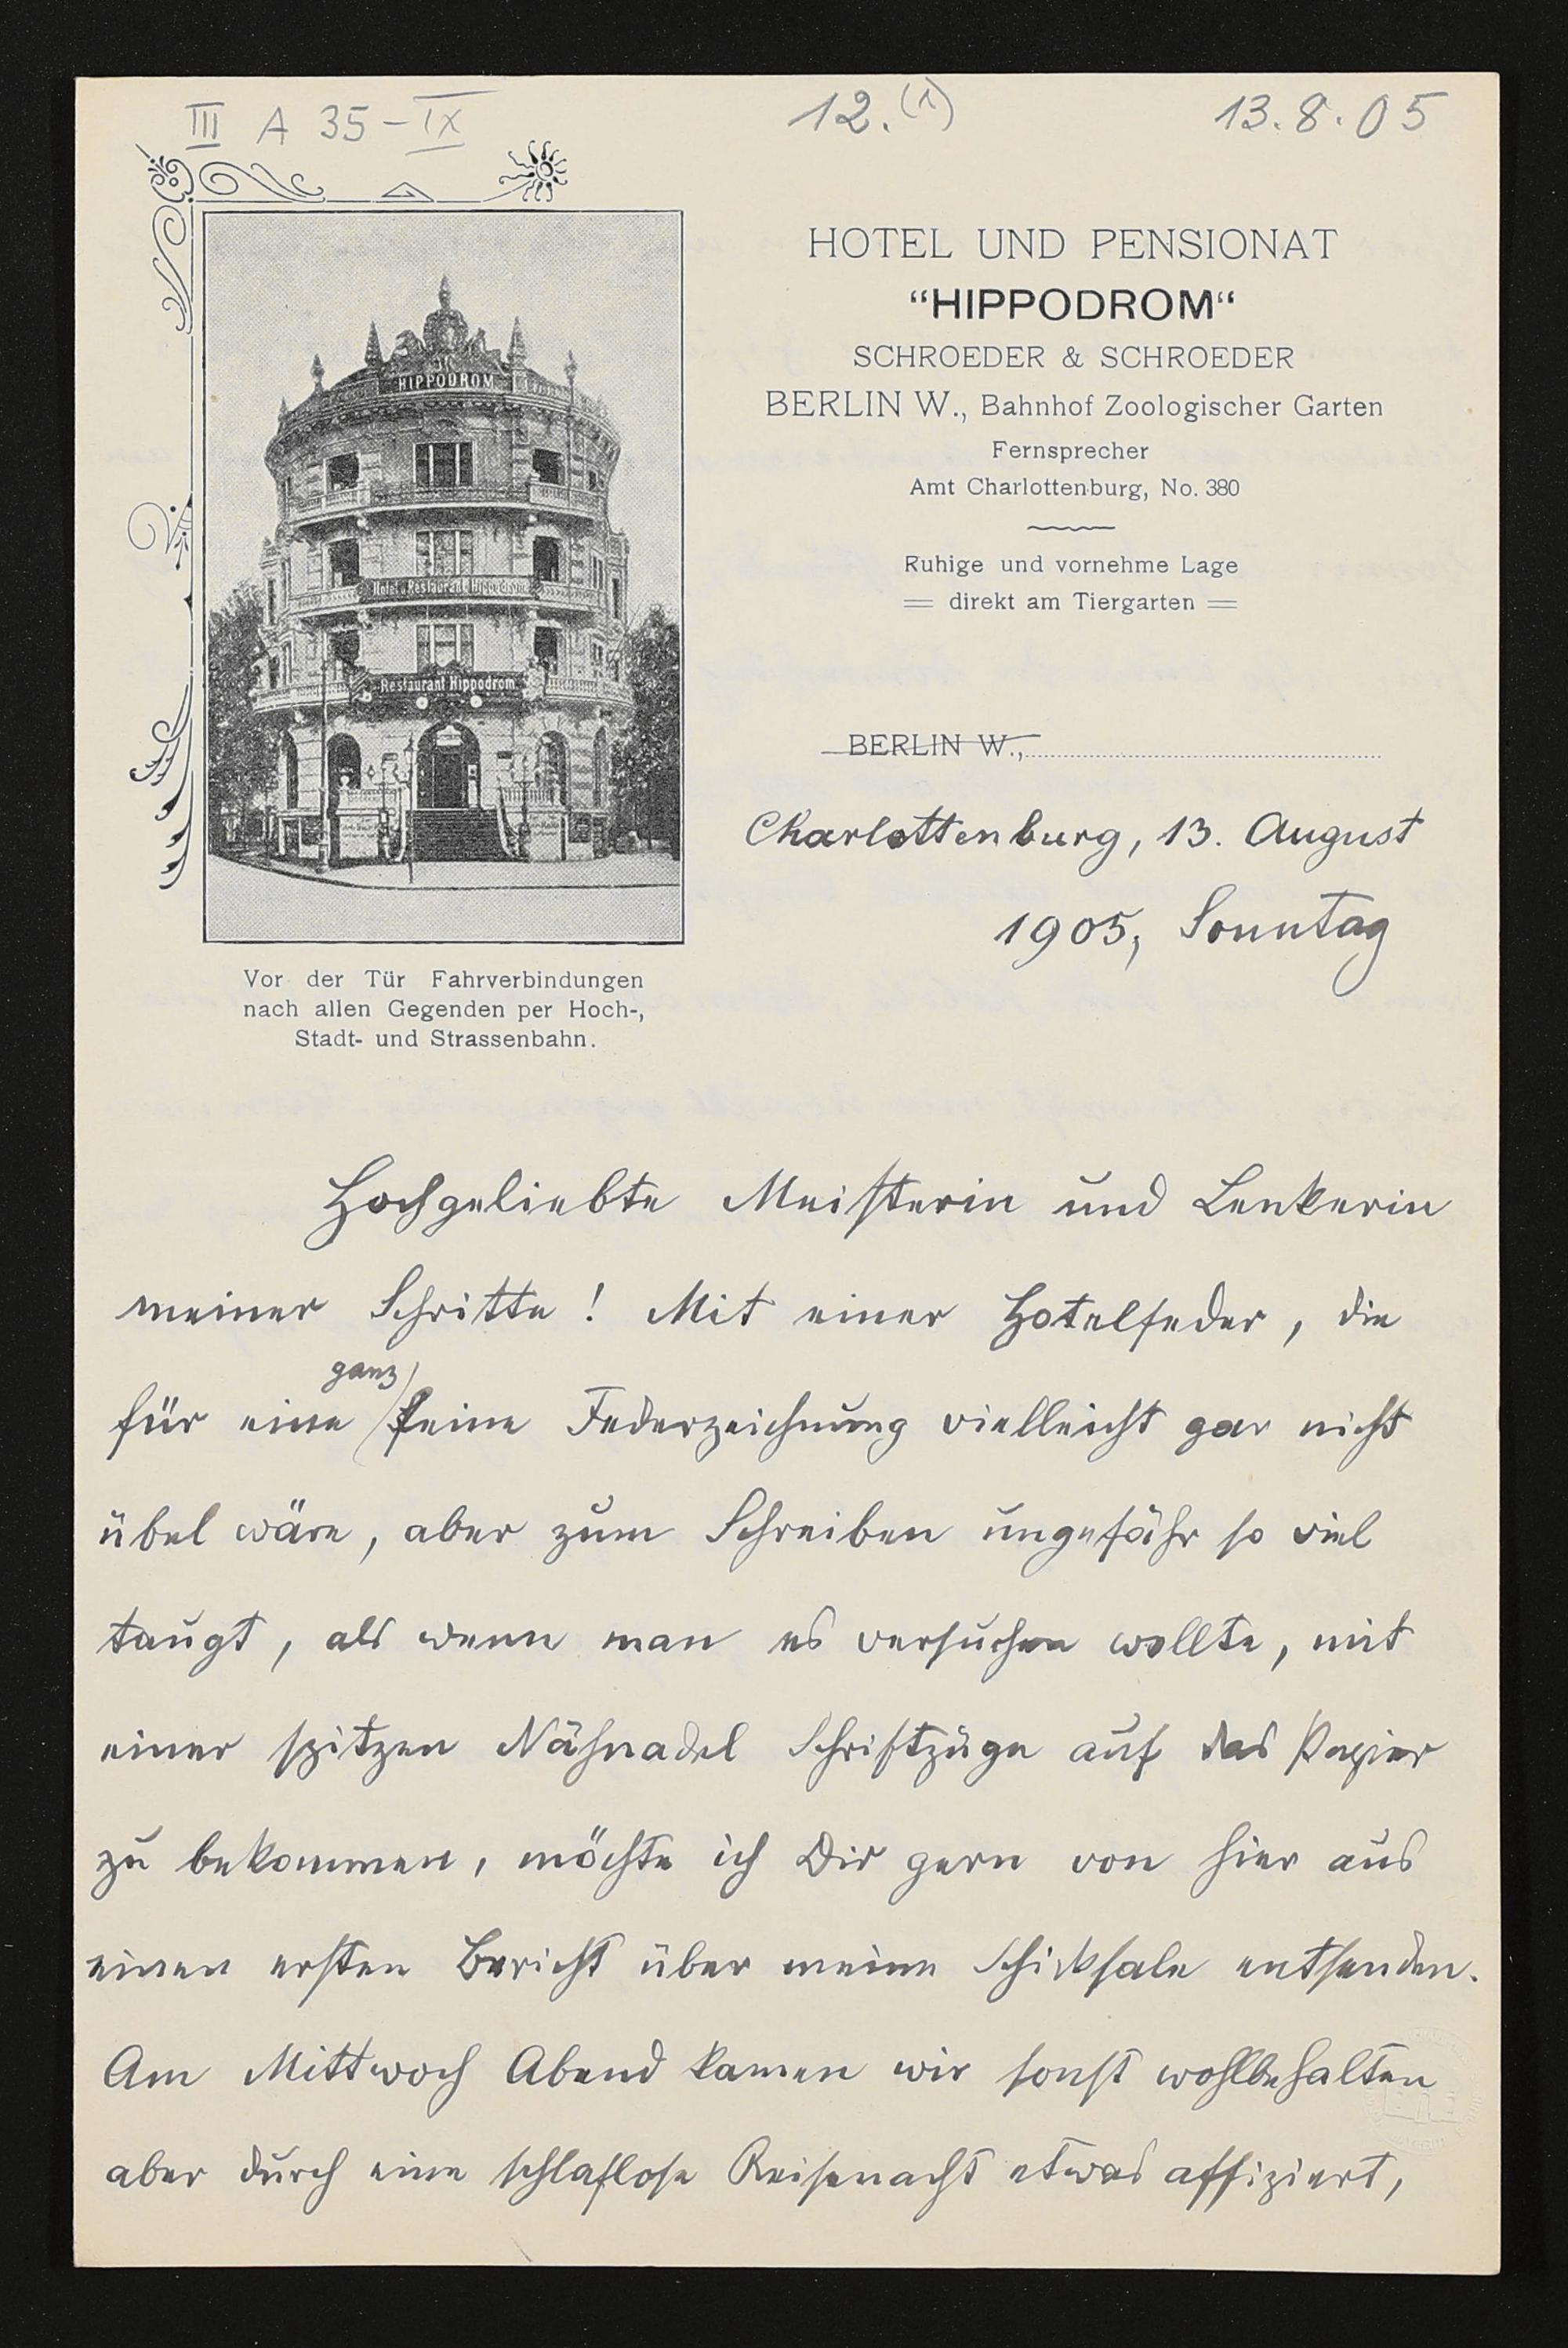 III A 35-IX
12.(1)
13.8.05
HIPPODROM
Hotel u. Restaurant Hippodrom
Restaurant Hippodrom
Vor der Tür Fahrverbindungen
nach allen Gegenden per Hoch-,
Stadt- und Strassenbahn.
HOTEL UND PENSIONAT
“HIPPODROM“
SCHROEDER & SCHROEDER
BERLIN W., Bahnhof Zoologischer Garten
Fernsprecher
Amt Charlottenburg, No. 380
Ruhige und vornehme Lage
direkt am Tiergarten
BERLIN W.,
Charlottenburg, 13. August
1905, Sonntag
Hochgeliebte Meisterin und Lenkerin
meiner Schritte! Mit einer Hotelfeder, die
ganz
für eine feine Federzeichnung vielleicht gar nicht
übel wäre, aber zum Schreiben ungefähr so viel
taugt, als wenn man es versuchen wollte, mit
einer spitzen Nähnadel Schriftzüge auf das Papier
zu bekommen, möchte ich Dir gern von hier aus
einen ersten Bericht über meine Schicksale entsenden.
Am Mittwoch Abend kamen wir sonst wohlbehalten
aber durch eine schlaflose Reisenacht etwas affiziert,